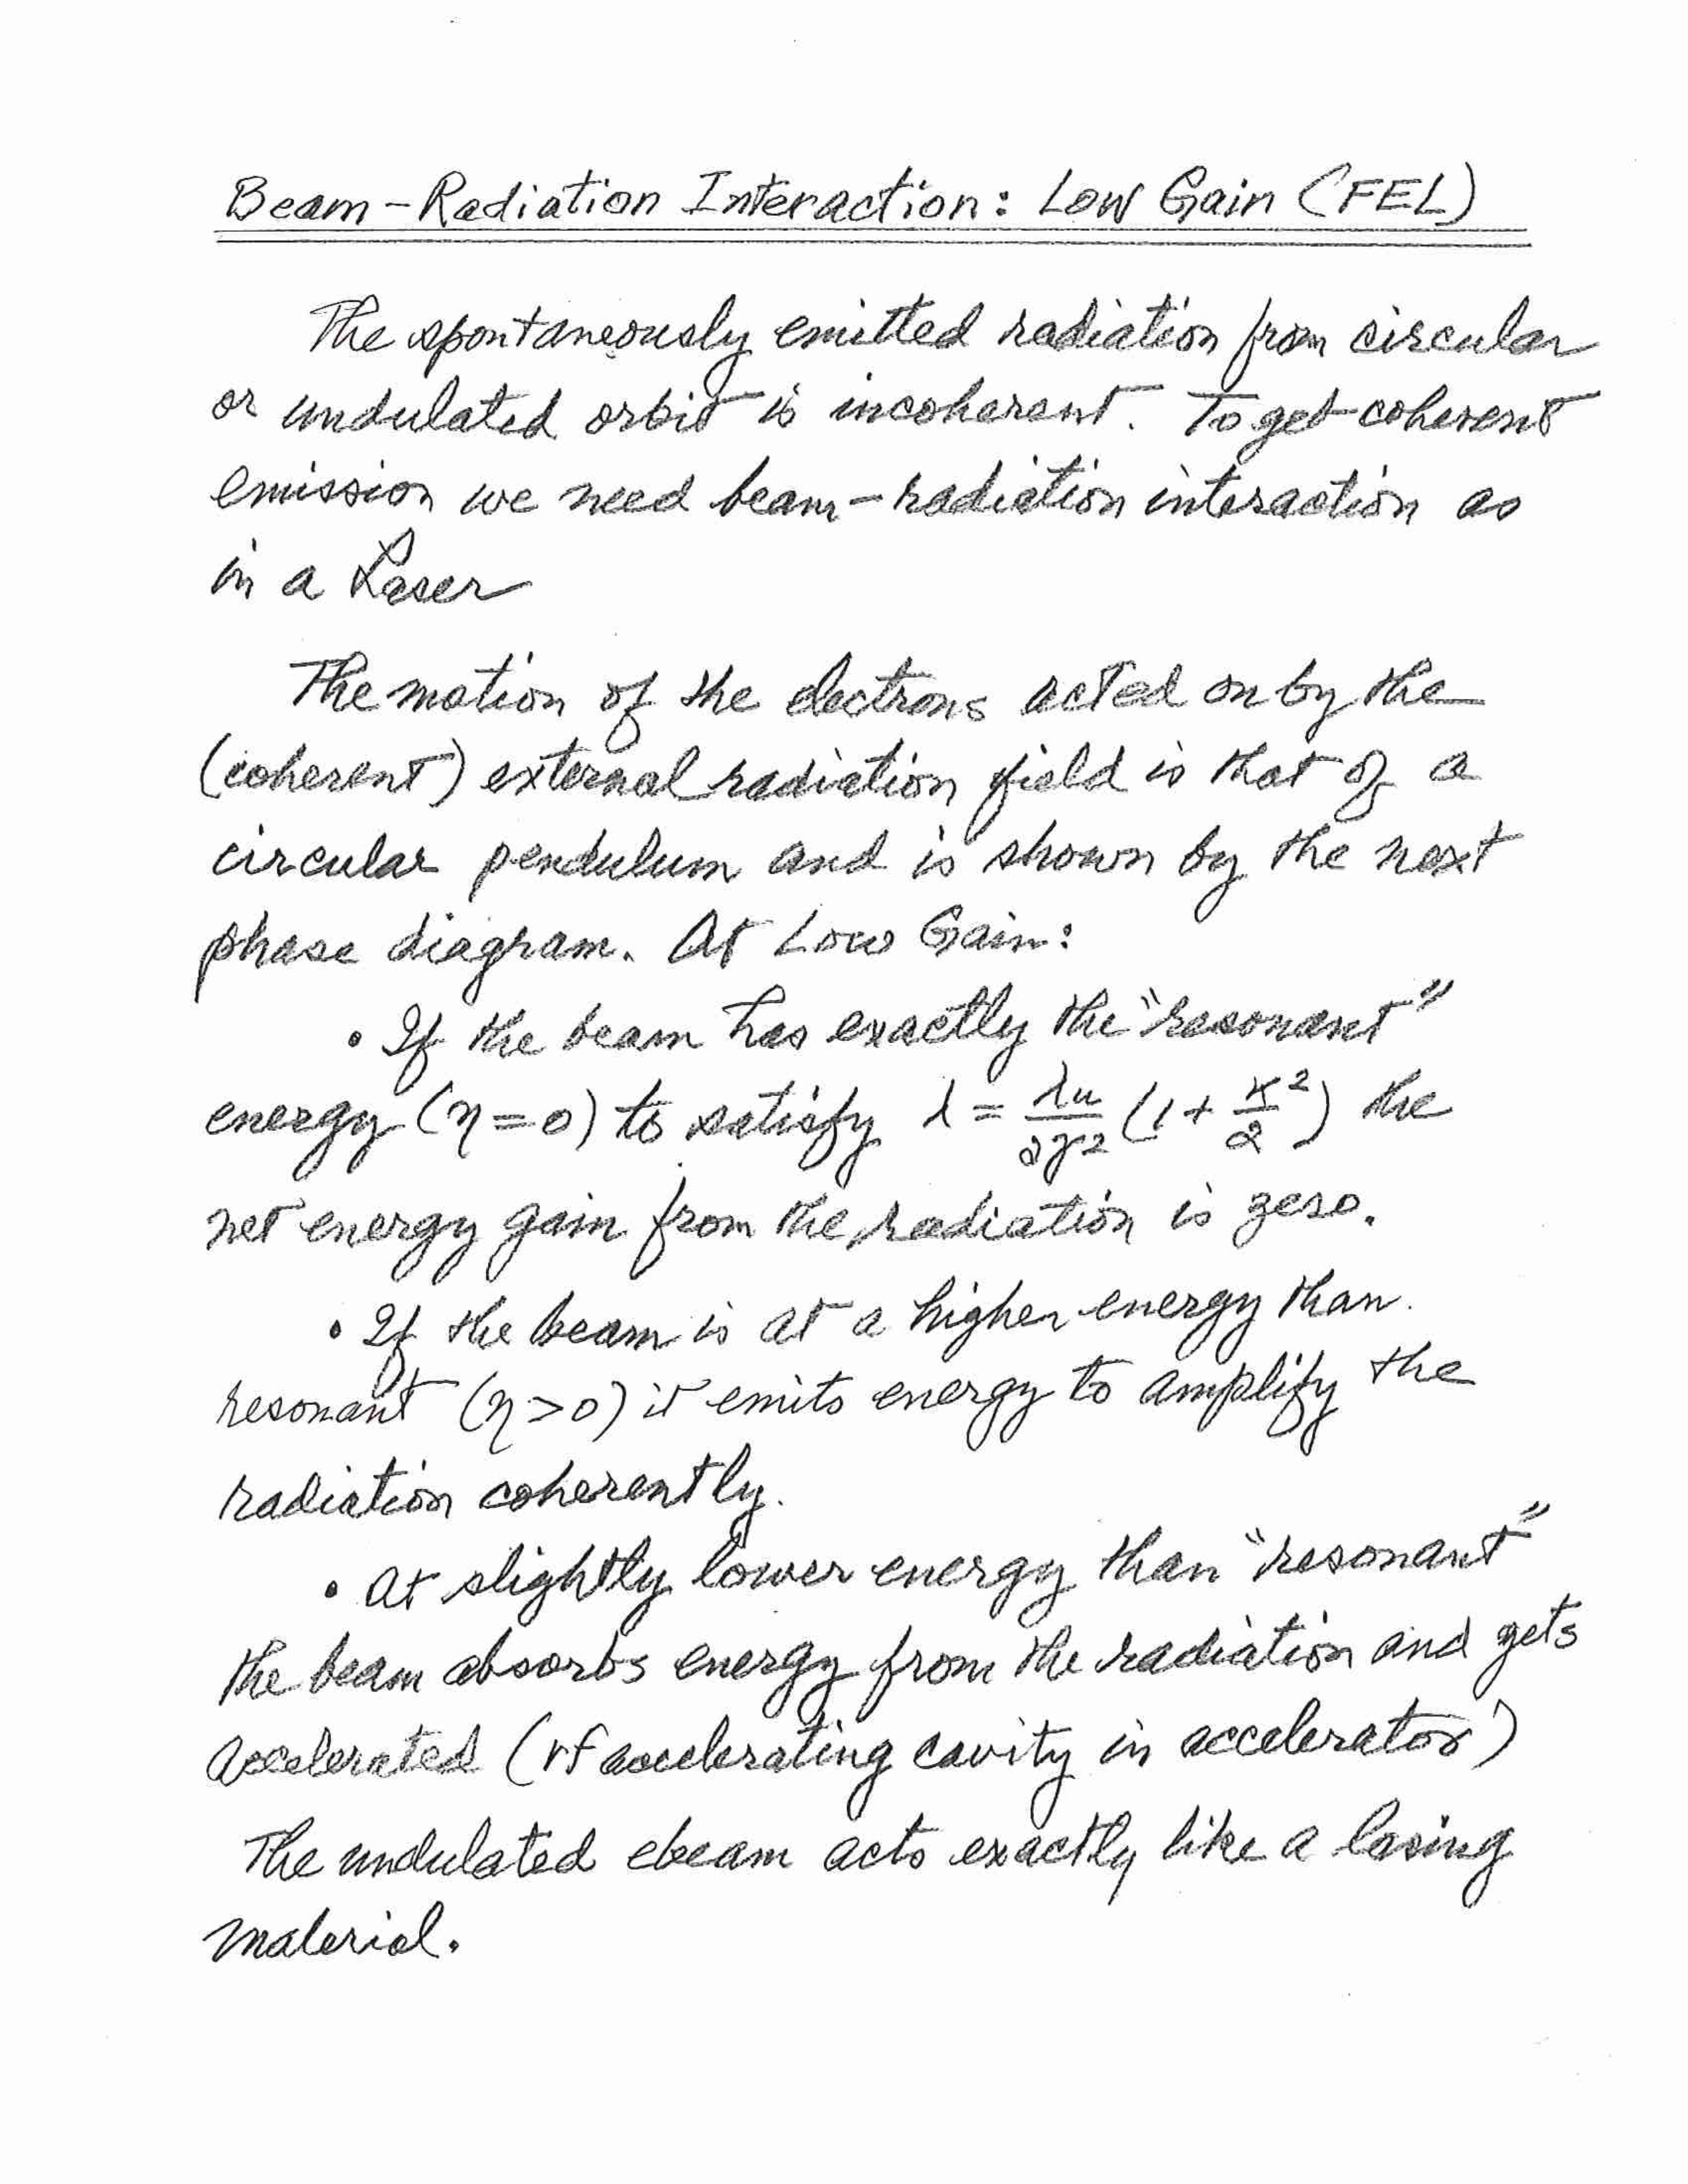 Beam-Radiation Interaction: Low Gain (FEL)
The spontaneously emitted radiation from circular
or undulated orbit is incoherent. To get coherent
emission we need beam-radiation interaction as
in a Laser
The motion of the electrons acted on by the
(coherent) external radiation field is that of a
circular pendulum and is shown by the next
phase diagram. At Low Gain:
• If the beam has exactly the "resonant"
energy (η=0) to satisfy λ = λu/2γ² (1 + K²/2) the
net energy gain from the radiation is zero.
• If the beam is at a higher energy than
resonant (η>0) it emits energy to amplify the
radiation coherently.
• At slightly lower energy than "resonant"
the beam absorbs energy from the radiation and gets
accelerated (rf accelerating cavity in accelerator)
The undulated ebeam acts exactly like a lasing
material.